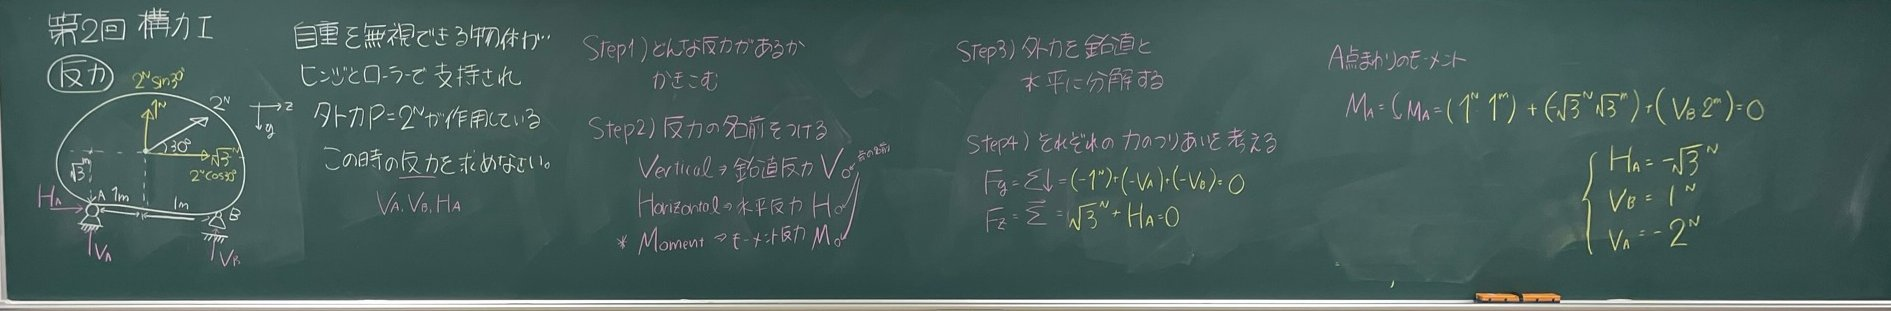 第2回 構力I
反力
2ᴺsin30°
1ᴺ
2ᴺ
z
y
30°
√3ᴺ
2ᴺcos30°
√3ᵐ
H_A
A
1m
1m
B
V_A
V_B
自重を無視できる
ヒンジとローラーで支持され
外力P=2ᴺが作用している
この時の反力を求めなさい。
V_A, V_B, H_A
Step1) どんな反力があるか
かきこむ
Step2) 反力の名前をつける
Vertical → 鉛直反力 V₀
Horizontal → 水平反力 H₀
* Moment → モーメント反力 M₀
Step3) 外力を鉛直と
水平に分解する
Step4) それぞれの力のつりあいを考える
Fy = Σ↓ = (-1ᴺ)+(-V_A)+(-V_B)=0
Fz = Σ→ = √3ᴺ + H_A=0
A点まわりのモーメント
M_A = ( M_A = (1ᴺ 1ᵐ) + (-√3ᴺ √3ᵐ) + (V_B 2ᵐ) = 0
H_A = -√3ᴺ
V_B = 1ᴺ
V_A = -2ᴺ